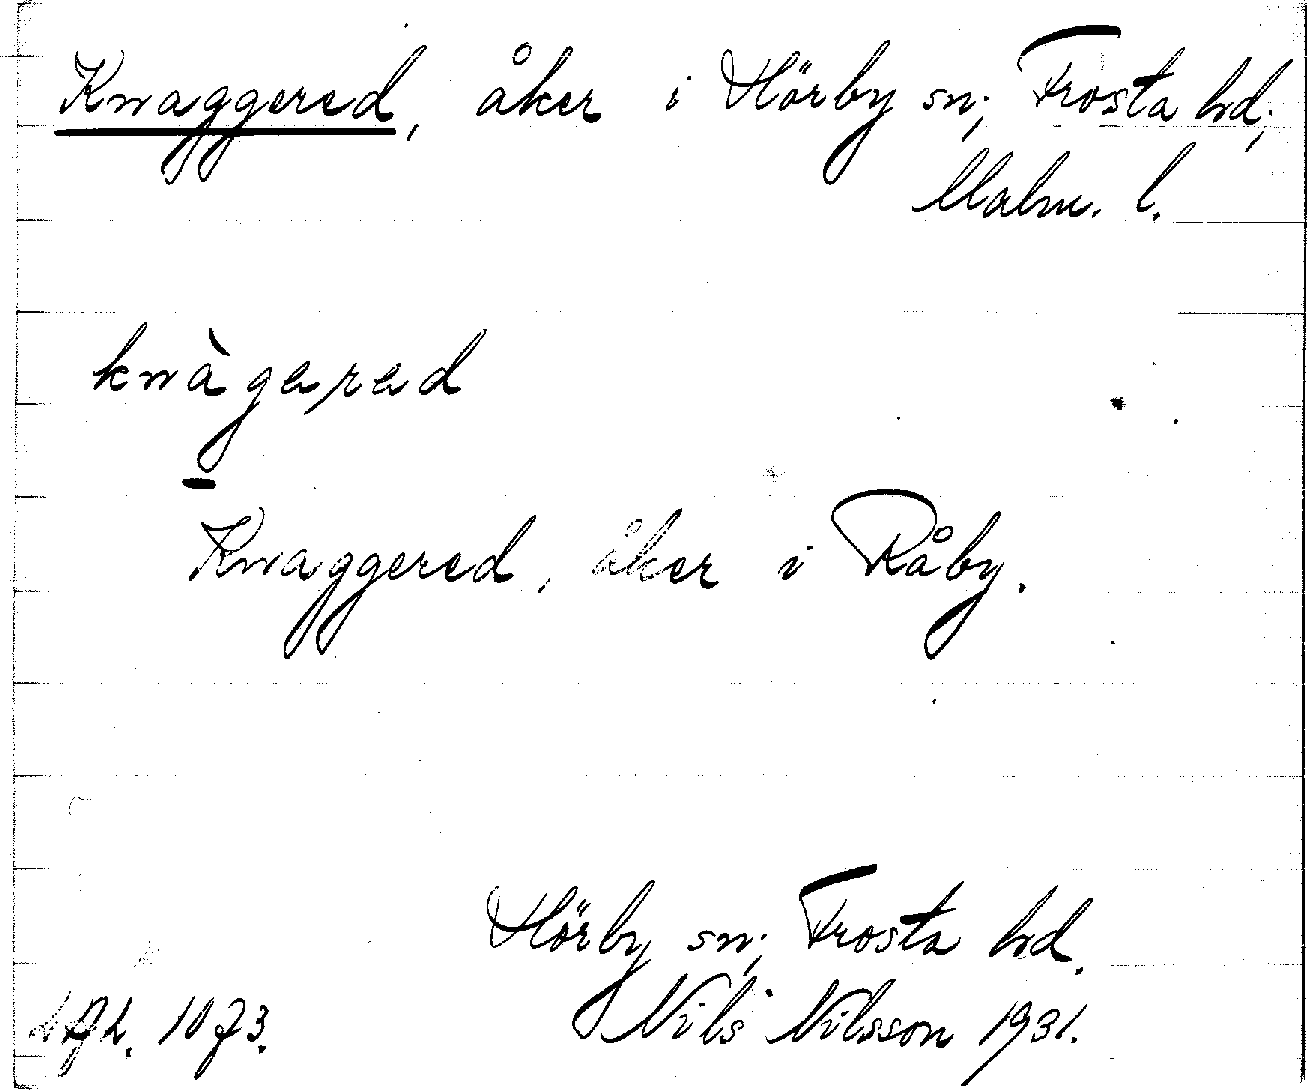 Knaggered, åker i Hörby sn; Frosta hd;
Malm. l.
knàgered
Knaggered, åker i Råby.
Hörby sn; Frosta hd.
Nils Nilsson 1931.